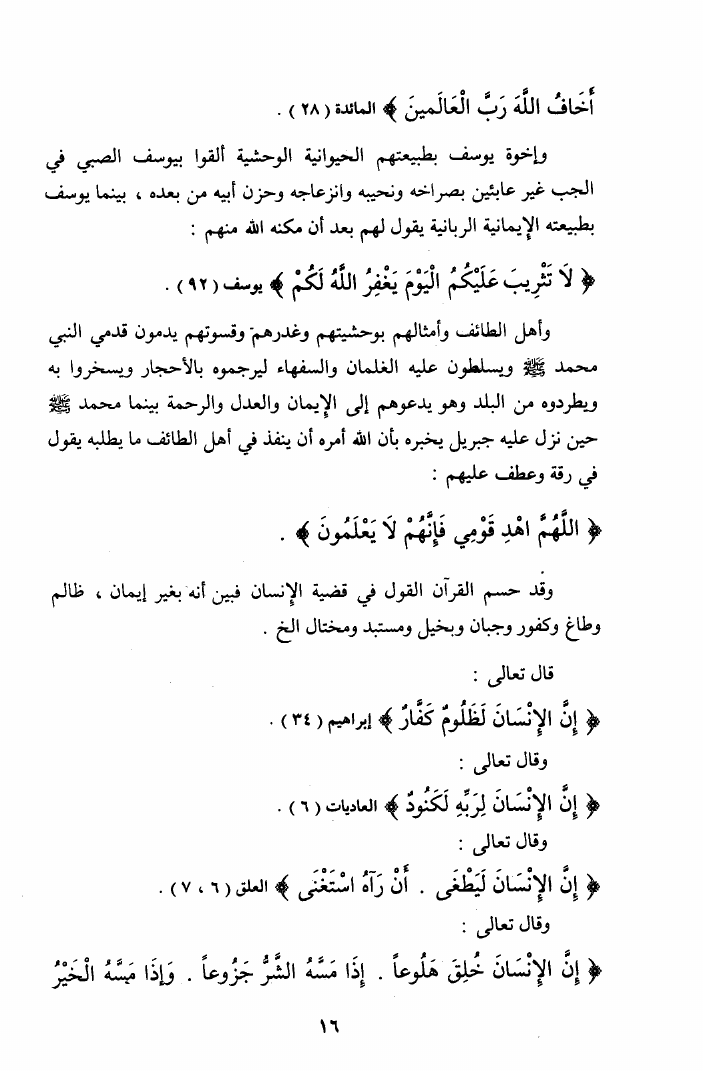 أَخَافُ اللَّهَ رَبَّ الْعَالَمِينَ ﴾ المائدة ( ٢٨ ) .
وإخوة يوسف بطبيعتهم الحيوانية الوحشية ألقوا بيوسف الصبي في
الجب غير عابئين بصراخه ونحيبه وانزعاجه وحزن أبيه من بعده ، بينما يوسف
بطبيعته الإيمانية الربانية يقول لهم بعد أن مكنه الله منهم :
﴿ لَا تَثْرِيبَ عَلَيْكُمُ الْيَوْمَ يَغْفِرُ اللَّهُ لَكُمْ ﴾ يوسف ( ٩٢ ) .
وأهل الطائف وأمثالهم بوحشيتهم وغدرهم وقسوتهم يدمون قدمي النبي
محمد ﷺ ويسلطون عليه الغلمان والسفهاء ليرجموه بالأحجار ويسخروا به
ويطردوه من البلد وهو يدعوهم إلى الإيمان والعدل والرحمة بينما محمد ﷺ
حين نزل عليه جبريل يخبره بأن الله أمره أن ينفذ في أهل الطائف ما يطلبه يقول
في رقة وعطف عليهم :
﴿ اللَّهُمَّ اهْدِ قَوْمِي فَإِنَّهُمْ لَا يَعْلَمُونَ ﴾ .
وقد حسم القرآن القول في قضية الإنسان فبين أنه بغير إيمان ، ظالم
وطاغ وكفور وجبان وبخيل ومستبد ومختال الخ .
قال تعالى :
﴿ إِنَّ الإِنْسَانَ لَظَلُومٌ كَفَّارٌ ﴾ إبراهيم ( ٣٤ ) .
وقال تعالى :
﴿ إِنَّ الإِنْسَانَ لِرَبِّهِ لَكَنُودٌ ﴾ العاديات ( ٦ ) .
وقال تعالى :
﴿ إِنَّ الإِنْسَانَ لَيَطْغَى . أَنْ رَآهُ اسْتَغْنَى ﴾ العلق ( ٦ ، ٧ ) .
وقال تعالى :
﴿ إِنَّ الإِنْسَانَ خُلِقَ هَلُوعاً . إِذَا مَسَّهُ الشَّرُّ جَزُوعاً . وَإِذَا مَسَّهُ الْخَيْرُ
١٦